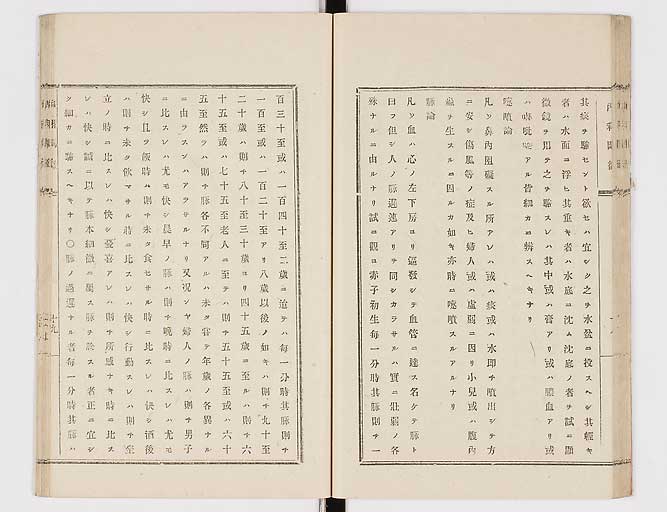 其痰ヲ驗セント欲セハ宜シク之ヲ水盌ニ投スヘシ其輕キ
者ハ水面ニ浮ヒ其重キ者ハ水底ニ沈ム沈底ノ者ヲ試ニ顯
微鏡ヲ用テ之ヲ驗スレハ其中或ハ膏アリ或ハ膿血アリ或
ハ アルハ皆細カニ辨スヘキナリ
噴嚏論
凡ソ鼻內阻礙スル所アレハ或ハ痰或ハ水即チ噴出シテ方
ニ安シ傷風等ノ症及ヒ婦人或ハ虛弱ニ因リ小兒或ハ腹內
蟲ヲ生スルニ因ルカ如キ亦時ニ噴嚏スルアルナリ
脉論
凡ソ血ハ心ノ左下房ヨリ逼發シテ血管ニ達ス名ケテ脉ト
曰フ但シ人ノ脉遲速アリテ同シカラサルハ實ニ壯弱ノ各
殊ナルニ由ルナリ試ニ觀ヨ赤子初生每一分時其脉則チ一
百三十至或ハ一百四十至二歲ニ迨テハ每一分時其脉則チ
一百至或ハ一百二十至アリ八歲以後ノ如キハ則チ九十至
二十歲ハ則チ八十至三十歲ヨリ四十五歲ニ至ルハ則チ六
十五至或ハ七十五至老人ニ至テハ則チ五十五至或ハ六十
五至然ラハ則チ脉各不同アルハ未タ甞テ年歲ノ各異ナル
ニ由ラスンハアラサルナリ又況ンヤ婦人ノ脉ハ則チ男子
ニ比スレハ尤モ快シ晨早ノ脉ハ則チ晚時ニ比スレハ尤モ
快シ且ツ飯時ハ則チ未タ食セサル時ニ比スレハ快シ酒後
ハ則チ未タ飲マサル時ニ比スレハ快シ行動スレハ則チ坐
立ノ時ニ比スレハ快シ憂喜アレハ則チ所感ナキ時ニ比ス
レハ快シ誠ニ以テ脉本細微ニ屬ス脉ヲ診スル者正ニ宜シ
ク細カニ驗スヘキナリ〇脉ノ過遲ナル者每一分時其脉ハ